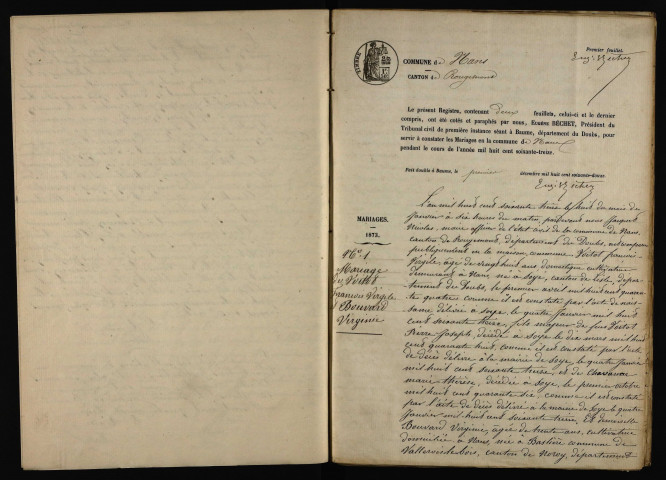 Premier feuillet.
Eug. Béchet
TIMBRE
COMMUNE de Nans
CANTON de Rougemont
Le présent Registre, contenant deux feuillets, celui-ci et le dernier
compris, ont été cotés et paraphés par nous, EUGÈNE BÉCHET, Président du
Tribunal civil de première instance séant à Baume, département du Doubs, pour
servir à constater les Mariages en la commune de Nans
pendant le cours de l'année mil huit cent soixante-treize.
Fait double à Baume, le premier décembre mil huit cent soixante-douze.
Eug. Béchet
MARIAGES.
1873.
N° 1
Mariage
de
François Virgile
Bouvard
Virginie
L'an mil huit cent soixante treize le huit du mois de
Janvier à six heures du matin, pardevant nous Jacquot
Nicolas, maire officier de l'état civil de la commune de Nans,
canton de Rougemont, département du Doubs, ont comparu
publiquement en la maison commune François
Virgile, âgé de vingt huit ans, domestique cultivateur
demeurant à Nans, né à Soye, canton de Lisle, dépar-
tement du Doubs, le premier avril mil huit cent quarante
quatre comme il est constaté par l'acte de nais-
sance délivré à Soye, le quatre Janvier mil huit
cent soixante treize, fils majeur de feu
Pierre Joseph décédé à Soye le dix mars mil huit
cent quarante huit, comme il est constaté par l'acte
de décès délivré à la mairie de Soye, le quatre Janvier
mil huit cent soixante treize, et de
marie Thérèse, décédée à Soye, le premier octobre
mil huit cent quarante six, comme il est constaté
par l'acte de décès délivré à la mairie de Soye le quatre
Janvier mil huit cent soixante treize, Et demoiselle
Bouvard Virginie, âgée de trente ans, cultivatrice
domiciliée à Nans, née à commune de
Vallerois-le-bois, canton de Noroy, département